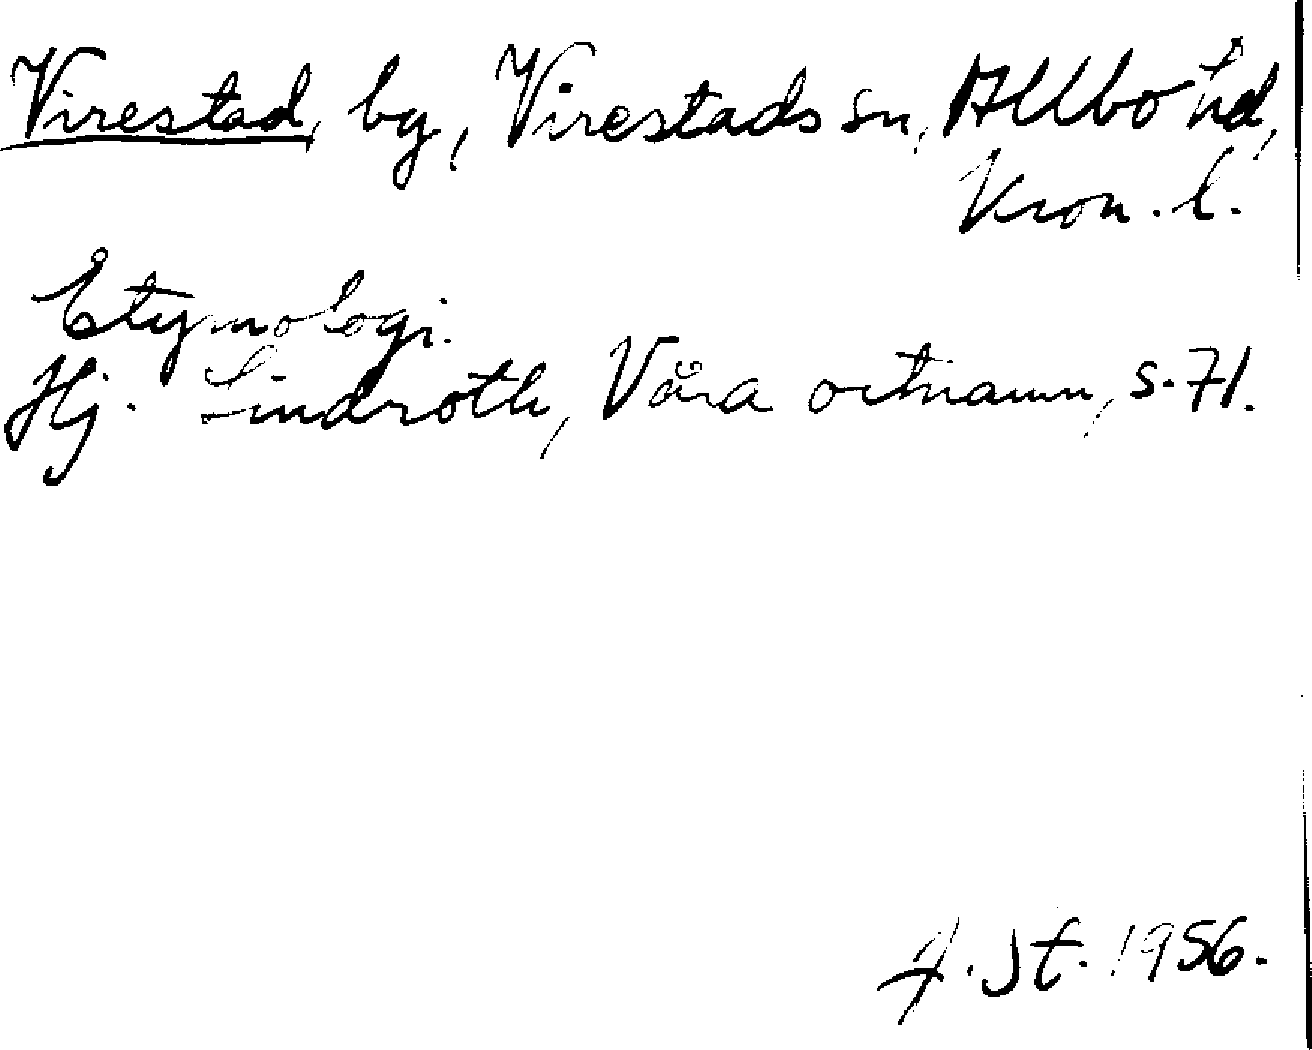 Virestad, by, Virestads sn, Allbo hd,
Kron. l.
Etymologi.
Hj. Lindroth, Våra ortnamn, s. 71.
St. 1956.